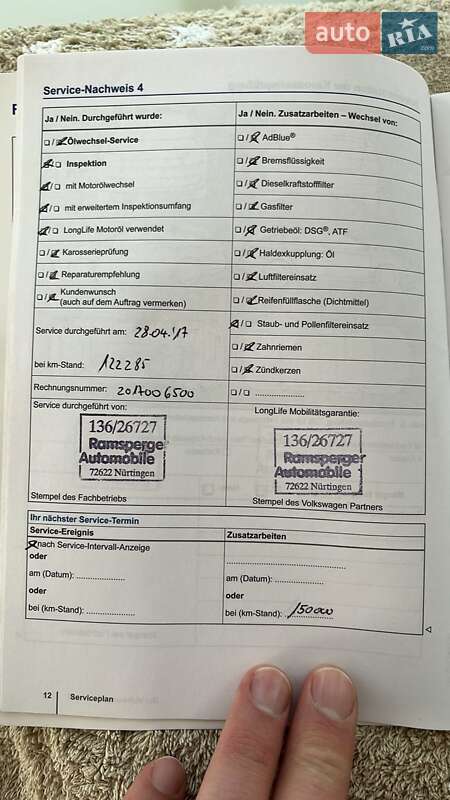 auto RIA
.com
Service-Nachweis 4
Ja / Nein. Durchgeführt wurde:
Ölwechsel-Service
Inspektion
mit Motorölwechsel
mit erweitertem Inspektionsumfang
LongLife Motoröl verwendet
Karosserieprüfung
Reparaturempfehlung
Kundenwunsch
(auch auf dem Auftrag vermerken)
Service durchgeführt am: 28.04.'17
bei km-Stand: 122285
Rechnungsnummer: 2017006500
Service durchgeführt von:
136/26727
Ramsperge
Automobile
72622 Nürtingen
Stempel des Fachbetriebs
Ja / Nein. Zusatzarbeiten – Wechsel von:
AdBlue®
Bremsflüssigkeit
Dieselkraftstofffilter
Gasfilter
Getriebeöl: DSG®, ATF
Haldexkupplung: Öl
Luftfiltereinsatz
Reifenfüllflasche (Dichtmittel)
Staub- und Pollenfiltereinsatz
Zahnriemen
Zündkerzen
....................
LongLife Mobilitätsgarantie:
136/26727
Ramsperger
Automobile
72622 Nürtingen
Stempel des Volkswagen Partners
Ihr nächster Service-Termin
Service-Ereignis
nach Service-Intervall-Anzeige
oder
am (Datum): ....................
oder
bei (km-Stand): ....................
Zusatzarbeiten
....................
am (Datum): ....................
oder
bei (km-Stand): 150000
12 Serviceplan